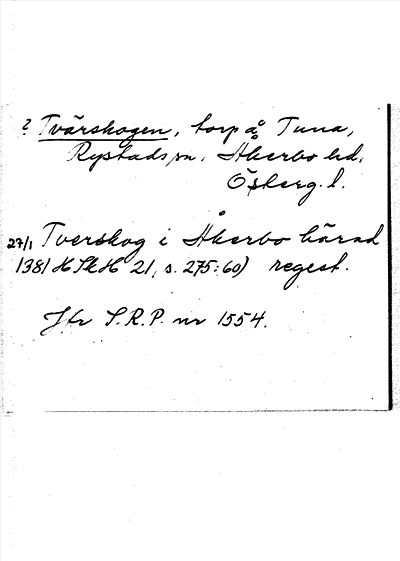 ? Tvärskogen, torp å Tuna,
Rystads sn. Åkerbo hd,
Östergl. l.
27/1 Tverskog i Åkerbo härad
1381 HSkH 21, s. 275:60) regest.
Jfr S.R.P. nr 1554.